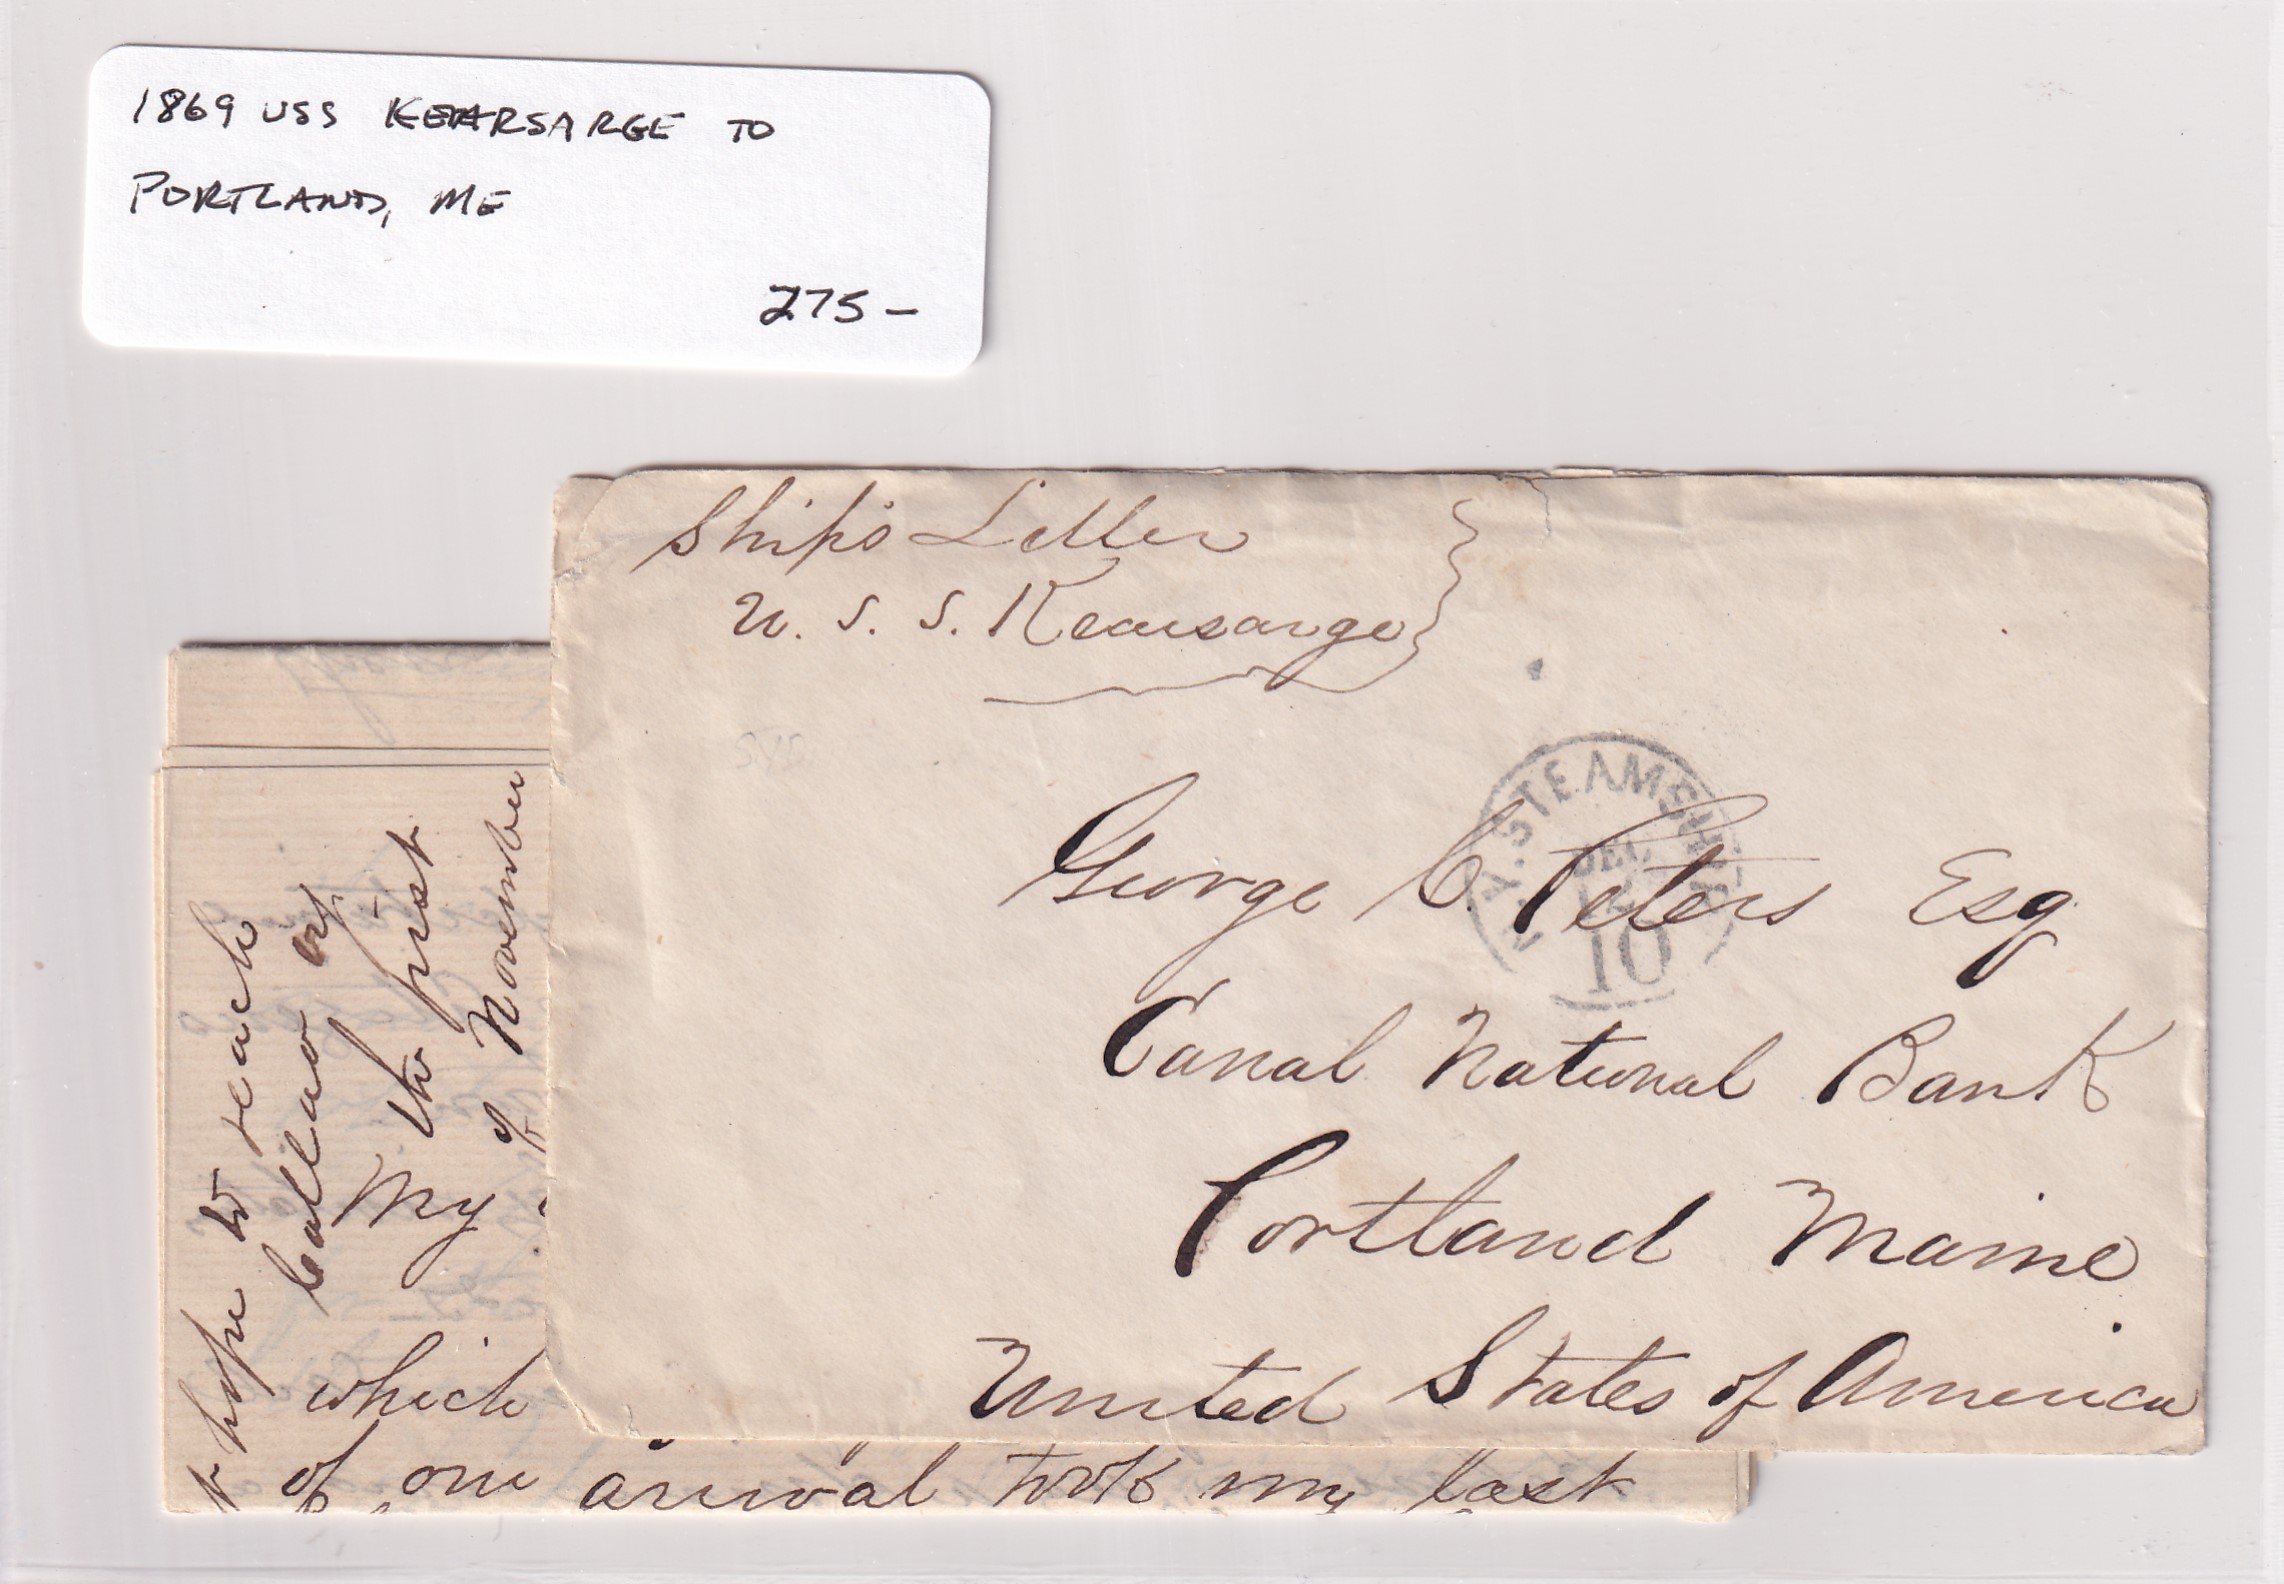 1869 USS KEARSARGE TO
PORTLAND, ME
275 –
Ship's Letter
U. S. S. Kearsarge
N.Y. STEAMSHIP
DEC
10
George C. Peters Esq
Canal National Bank
Portland Maine
United States of America
hope to reach
Callao by
the first
of November
My
which
of our arrival took my last